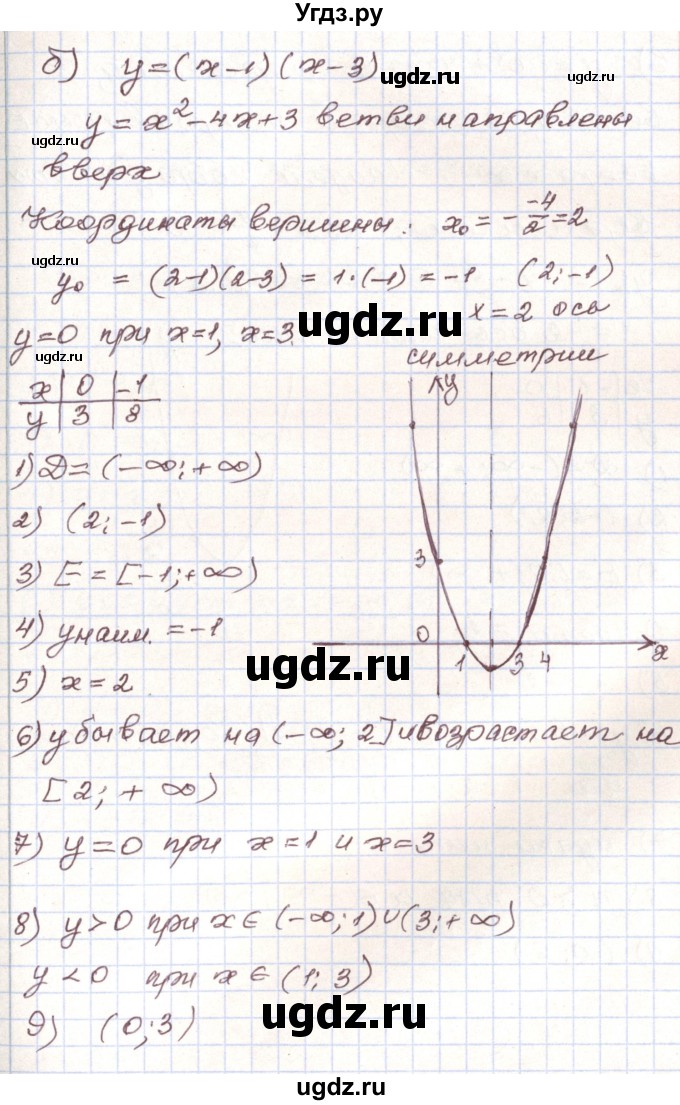 Угдз.ру
б) y=(x-1)(x-3)
y=x²-4x+3 ветви направлены
вверх
Координаты вершины: x₀ = - -4/2 = 2
y₀ = (2-1)(2-3) = 1·(-1) = -1 (2;-1)
y=0 при x=1, x=3. x=2 ось
симметрии
x | 0 | -1
y | 3 | 8
1) D=(-∞;+∞)
2) (2;-1)
3) E=[-1;+∞)
4) yнаим. = -1
5) x=2.
6) убывает на (-∞; 2] и возрастает на
[2; +∞)
7) y=0 при x=1 и x=3
8) y>0 при x∈(-∞;1)∪(3;+∞)
y<0 при x∈(1;3)
9) (0;3)
y
3
0
1 3 4 x
ugdz.ru
ugdz.ru
ugdz.ru
ugdz.ru
ugdz.ru
ugdz.ru
ugdz.ru
ugdz.ru
ugdz.ru
ugdz.ru
ugdz.ru
ugdz.ru
ugdz.ru
ugdz.ru